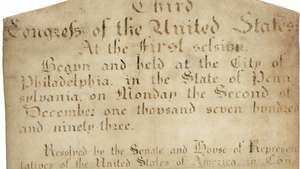 Third
Congress of the United States
At the first session
Begun and held at the City of
Philadelphia, in the State of Penn
sylvania, on Monday the Second of
December one thousand seven hundre
and ninety three.
Resolved by the Senate and House of Represen
tatives of the United States of America in Con